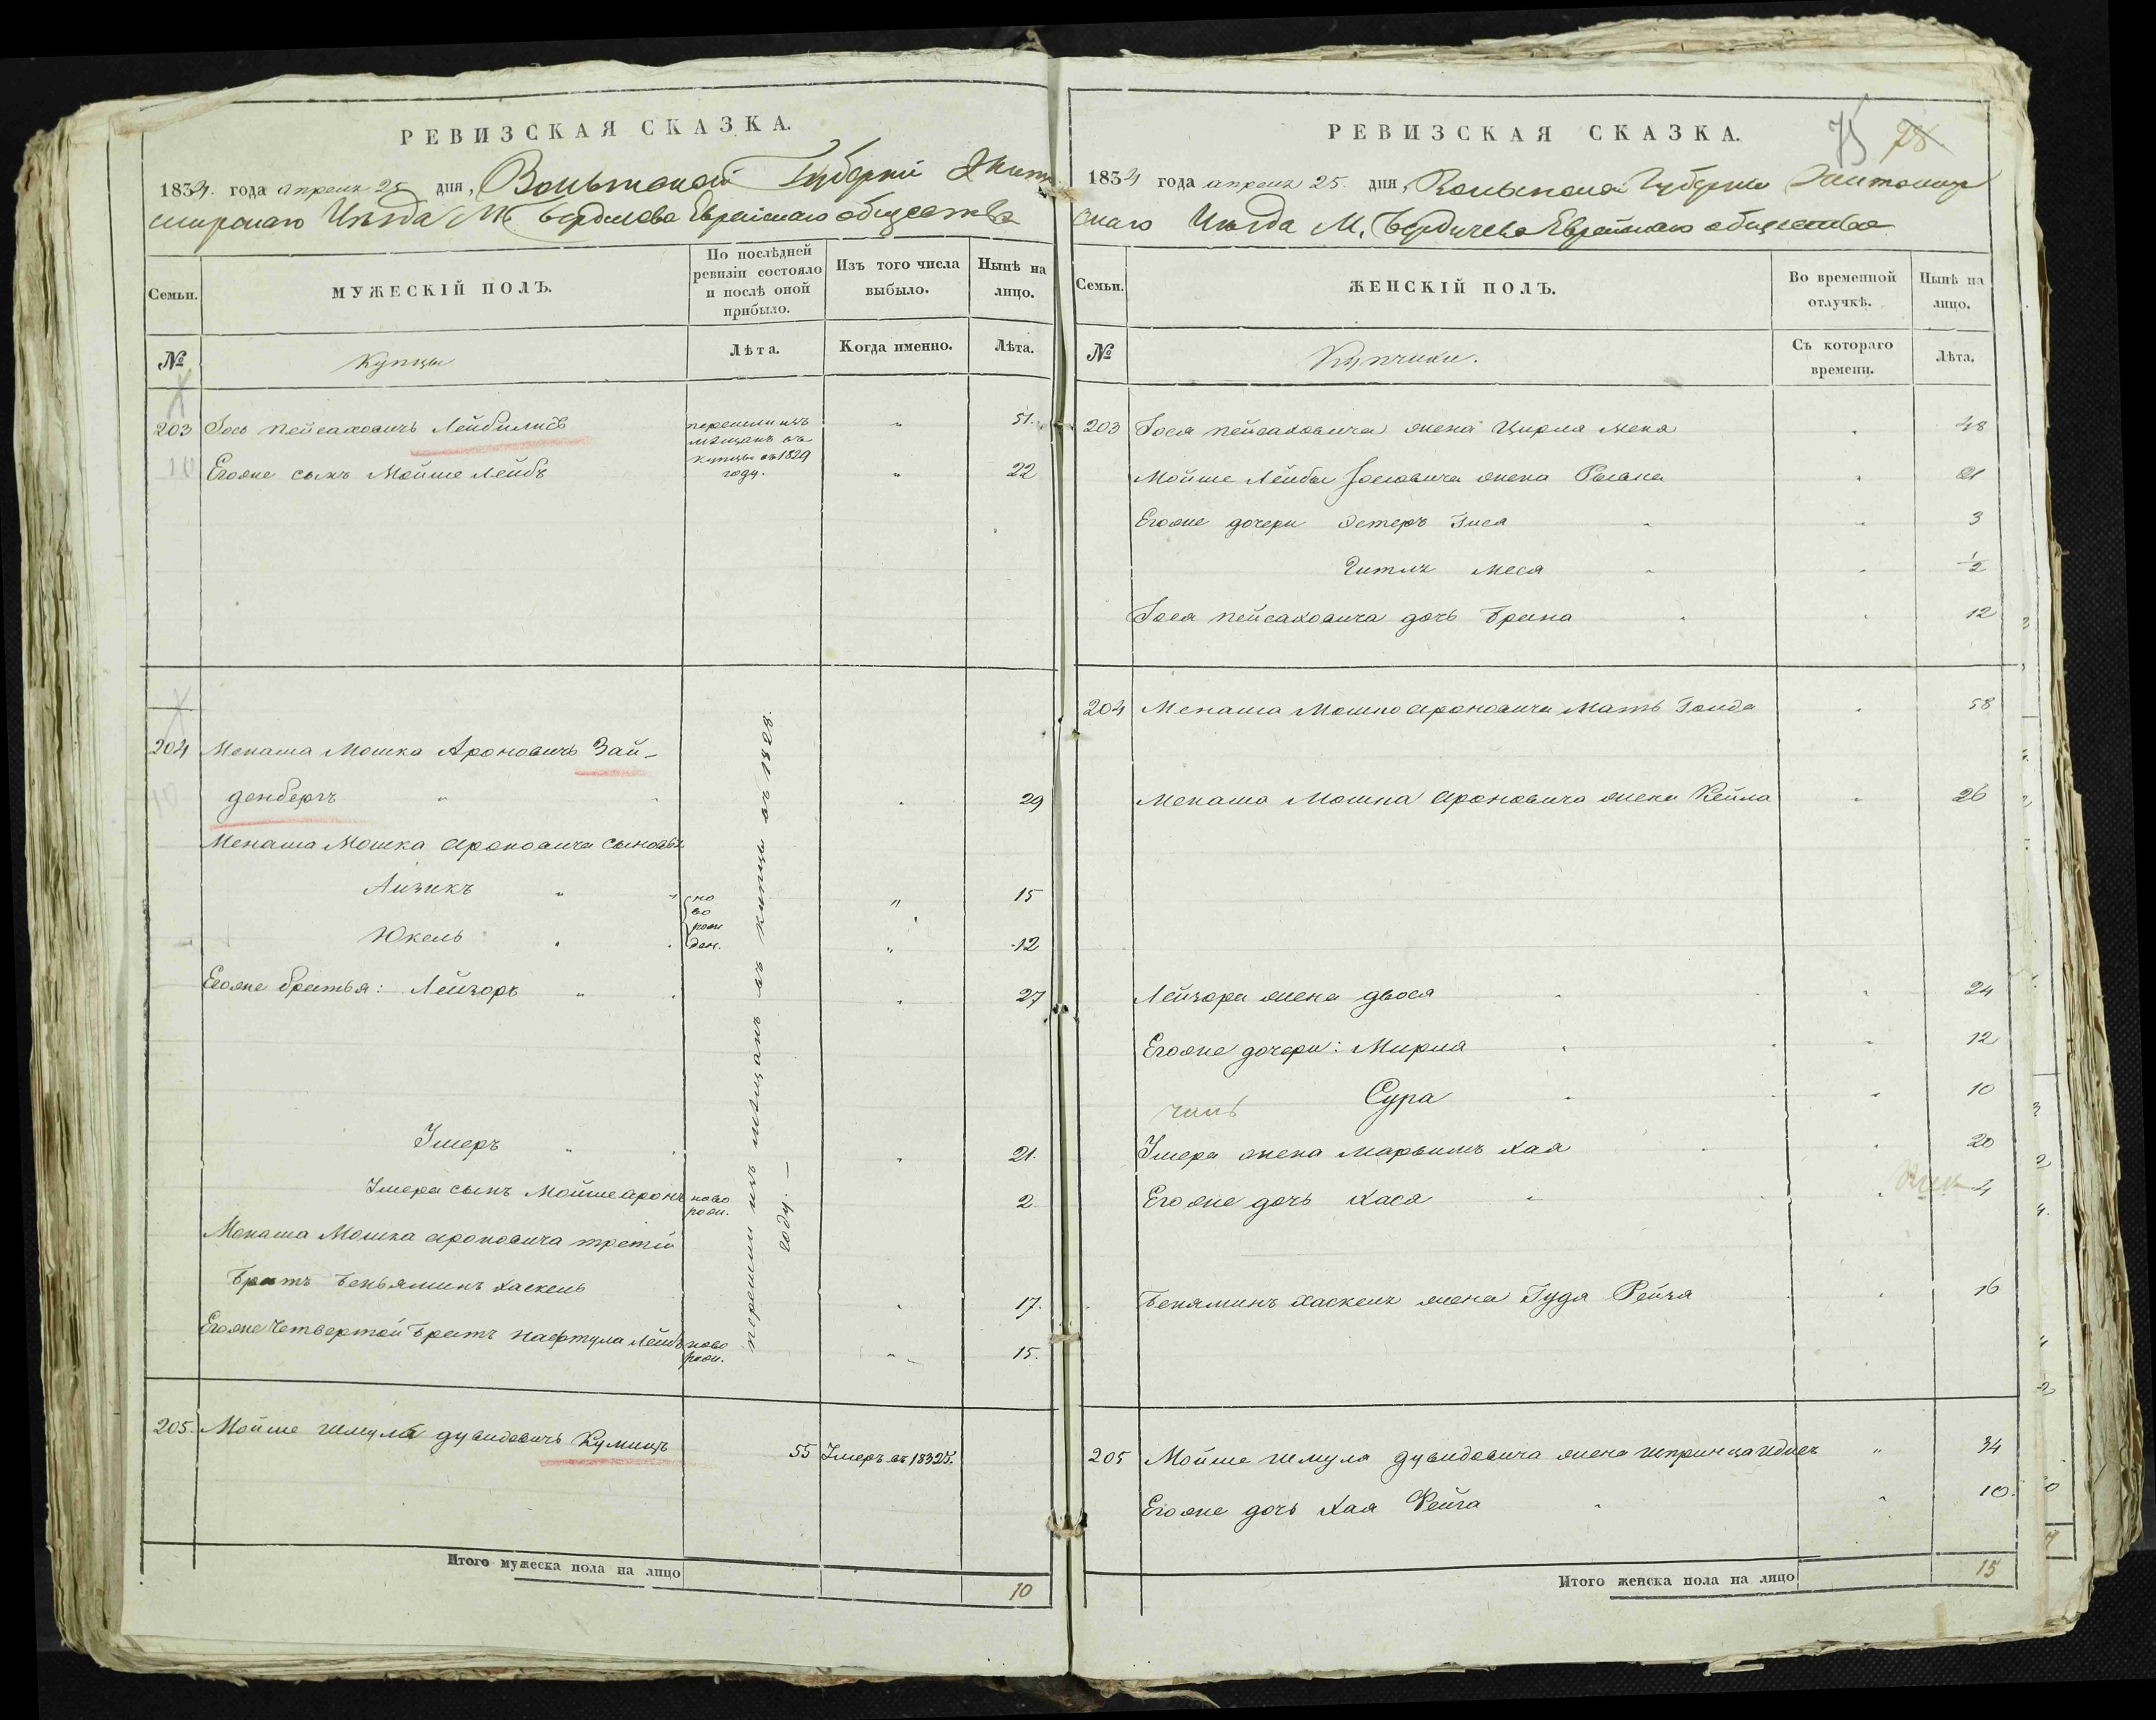 РЕВИЗСКАЯ СКАЗКА.
1834. года апреля 25 дня, Волынской Губерніи Жито
мирскаго Уѣзда М. Бердичева Еврейскаго общества
Семьи.
МУЖЕСКІЙ ПОЛЪ.
По послѣдней ревизіи состояло и послѣ оной прибыло.
Изъ того числа выбыло.
Нынѣ на лицо.
№
Купцы
Лѣта.
Когда именно.
Лѣта.
203 Іось Пейсаховичь Лейбилисъ перешли изъ мѣщанъ въ купцы въ 1829 году. " 51.
Егоже сынъ Мойше Лейбъ " 22
204 Менаша Мошка Ароновичь Зай-
денбергъ " 29
Менаша Мошка Ароновича сыновья
Аизикъ " но во рож ден. " 15
Юкель " 12
Егоже братья: Лейзоръ " 27
Умеръ " 21.
Умера сынъ Мойше Аронъ ново рож. 2
Менаша Мошка Ароновича третій
Братъ Беньяминъ Хаскель 17.
Егоже четвертой Братъ Нафтула Лейбъ ново рож. " 15.
перешли изъ мѣщанъ въ купцы въ 1828. году. —
205. Мойше Шмула Дувидовичь Кумицъ 55 Умеръ въ 1832.
Итого мужеска пола на лицо 10
РЕВИЗСКАЯ СКАЗКА.
75 78
1834 года апреля 25. дня, Волынской Губерніи Житомир
скаго Уѣзда М. Бердичева Еврейскаго общества
Семьи.
ЖЕНСКІЙ ПОЛЪ.
Во временной отлучкѣ.
Нынѣ на лицо.
№
Купчихи.
Съ котораго времени.
Лѣта.
203 Іося Пейсаховича жена Цирля 48
Мойше Лейбы Іосіовича жена 21
Егоже дочери Эстеръ " 3
Гитля Меся " 1/2
Іося Пейсаховича дочь Брана 12
204 Менаша Мошко Ароновича Мать Голда 58
Менаша Мошка Ароновича жена Кейла " 26
Лейзора жена Двося " 24
Егоже дочери: Мирма 12
Сура 10
Умера жена Марьямъ Хая 20
Егоже дочь Хася " 4
Беняминъ Хаскеля жена Гудя Рейза 16
205 Мойше Шмула Дувидовича жена Шпринца " 34
Егоже дочь Хая Фейга 10.
Итого женска пола на лицо 15